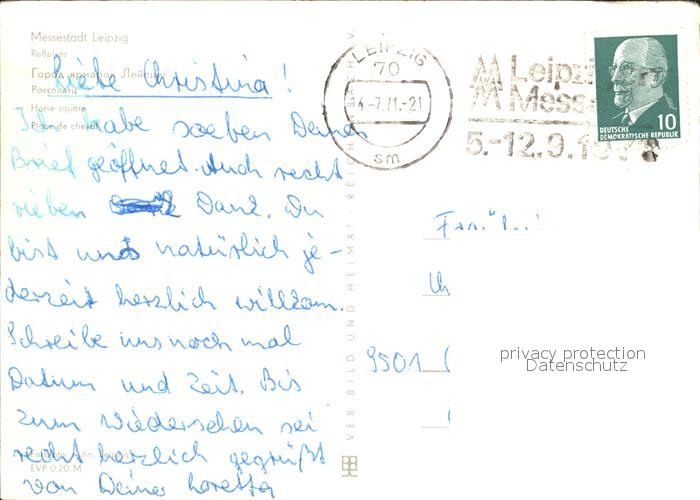 Messestadt Leipzig
Roßplatz
Город ярмарок Лейпциг
Россплатц
Horse square
Place de cheval
Liebe Christina!
Ich habe soeben Deinen
Brief geöffnet. Auch recht
lieben Dank. Du
bist uns natürlich je-
derzeit herzlich willkom.
Schreibe uns noch mal
Datum und Zeit. Bis
zum Wiedersehen sei
recht herzlich gegrüßt
von Deiner Loretta
EVP 0,20 M
VEB BILD UND HEIMAT REICHENBACH V.
LEIPZIG
70
-7.71.-21
sm
Leipzi
Messe
5.-12.9.19
10
DEUTSCHE
DEMOKRATISCHE REPUBLIK
9501
privacy protection
Datenschutz